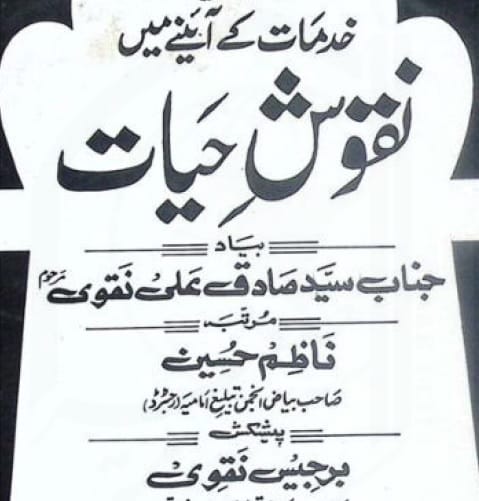 خدمات کے آئینے میں
نقوشِ حیات
بیاد
جناب سید صادق علی نقوی مرحوم
مرتبہ
ناظم حسین
صاحب بیاض انجمن تبلیغ امامیہ (رجسٹرڈ)
پیشکش
برجیس نقوی